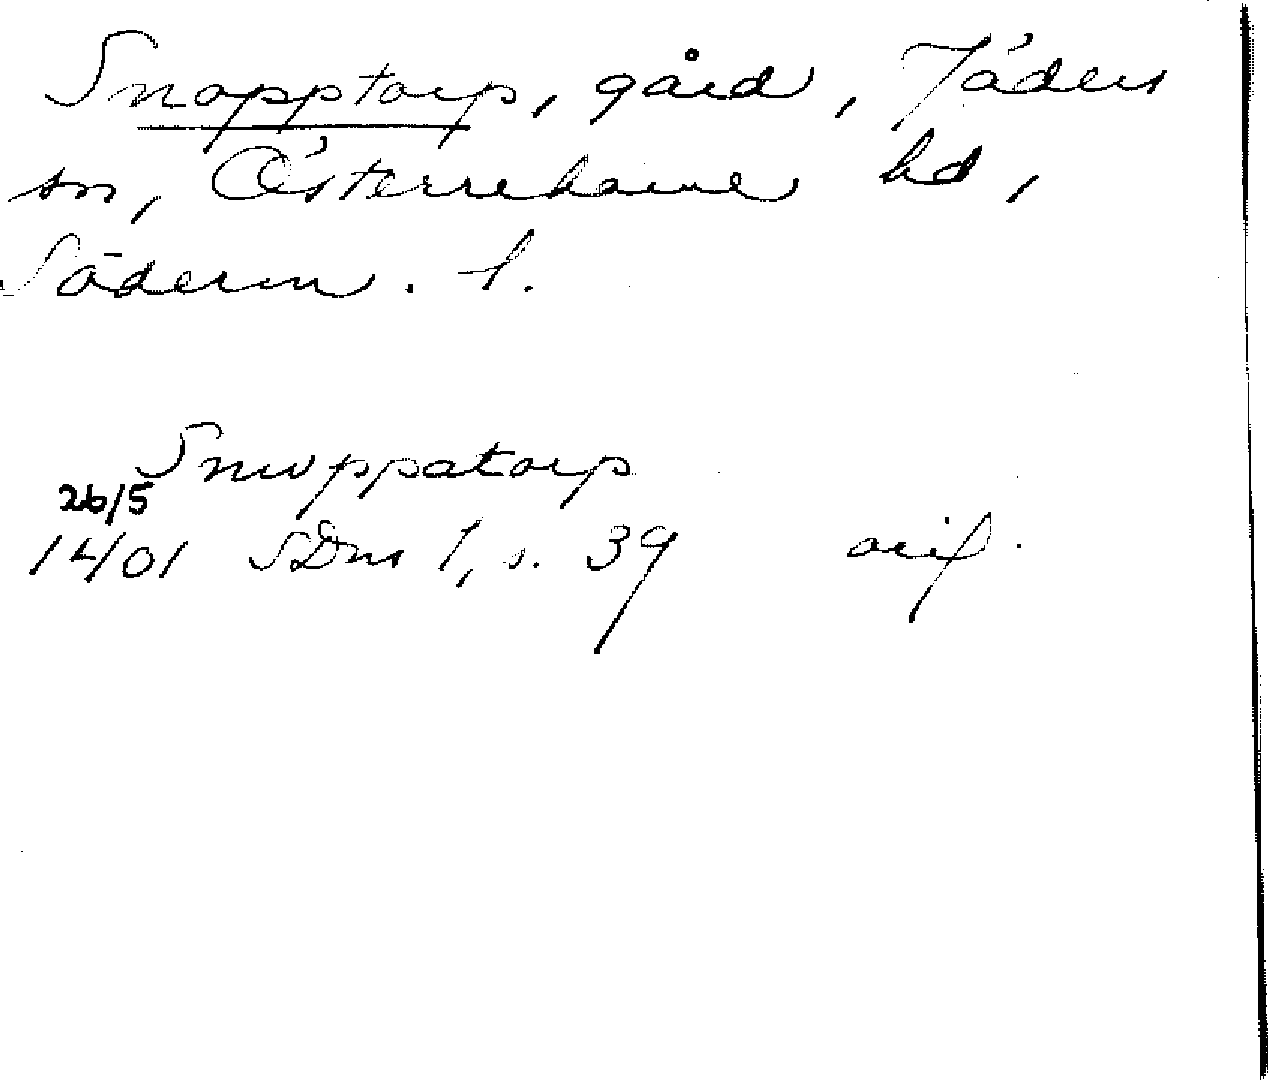 Snopptorp, gård, Jäders
sn, Österrekarne hd,
Söderm. l.
Snuppatorp
26/5
1401 SDns 1, s. 39 orig.